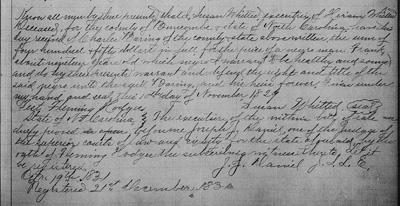 Know all men by these presents that I, Susan Whitted executrix of Hiram Whitted
deceased, for the county of and state of North Carolina, have this
day received of Baring of the county & state above written the sum of
four hundred & fifty dollars in full for the price of a negro man Frank
about nineteen years old which negro I warrant to be healthy and sound
and do by these presents warrant and defend the right and title of the
said negro unto the said Baring and his heirs forever. Given under
my hand and seal this day of November 18
Test Fleming Hodges Susan Whitted (seal)
State of No Carolina } The execution of the within bill of sale was
duly proved in open before me Joseph J. Daniel, one of the judges of
the superior courts of law and equity for the state aforesaid, by the
oath of Fleming Hodges the subscribing witness thereto. Let it
be registered J. J. Daniel J. S. L. E.
Oct. 19th 1831
Registered 21st December 183